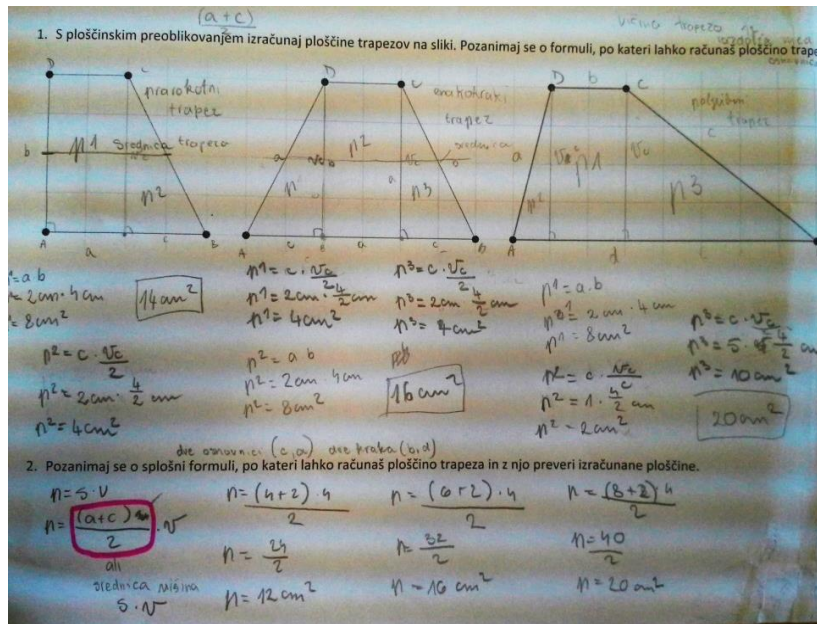 (a+c)
2
višina trapeza je
razdalja med
osnovnicama
1. S ploščinskim preoblikovanjem izračunaj ploščine trapezov na sliki. Pozanimaj se o formuli, po kateri lahko računaš ploščino trape
D C
pravokotni
trapez
b p1 srednica trapeza
p2
A a c B
D C
enakokraki
trapez
p2 srednica
p3
A c a c b
D b C
poljubni
trapez
a p1 vc c
p3
A d
= a b
= 2cm · 4cm
= 8cm²
14cm²
p2 = c · vc/2
p2 = 2cm · 4/2 cm
p2 = 4cm²
p1 = c · vc/2
p1 = 2cm · 4/2 cm
p1 = 4cm²
p2 = a b
p2 = 2cm · 4cm
p2 = 8cm²
p3 = c · vc/2
p3 = 2cm · 4/2 cm
p3 = 4cm²
16cm²
p1 = a.b
p1 = 2cm · 4cm
p1 = 8cm²
p2 = 1 · 4/2 cm
p2 = 2cm²
p3 = c · vc/2
p3 = 5 · 4/2 cm
p3 = 10cm²
20cm²
dve osnovnici (c,a) dve kraka (b,d)
2. Pozanimaj se o splošni formuli, po kateri lahko računaš ploščino trapeza in z njo preveri izračunane ploščine.
p = s·v
p = (a+c)/2 · v
ali
srednica višina
s·v
p = (4+2)·4/2
p = 24/2
p = 12cm²
p = (6+2)·4/2
p = 32/2
p = 16cm²
p = (8+2)4/2
p = 40/2
p = 20cm²